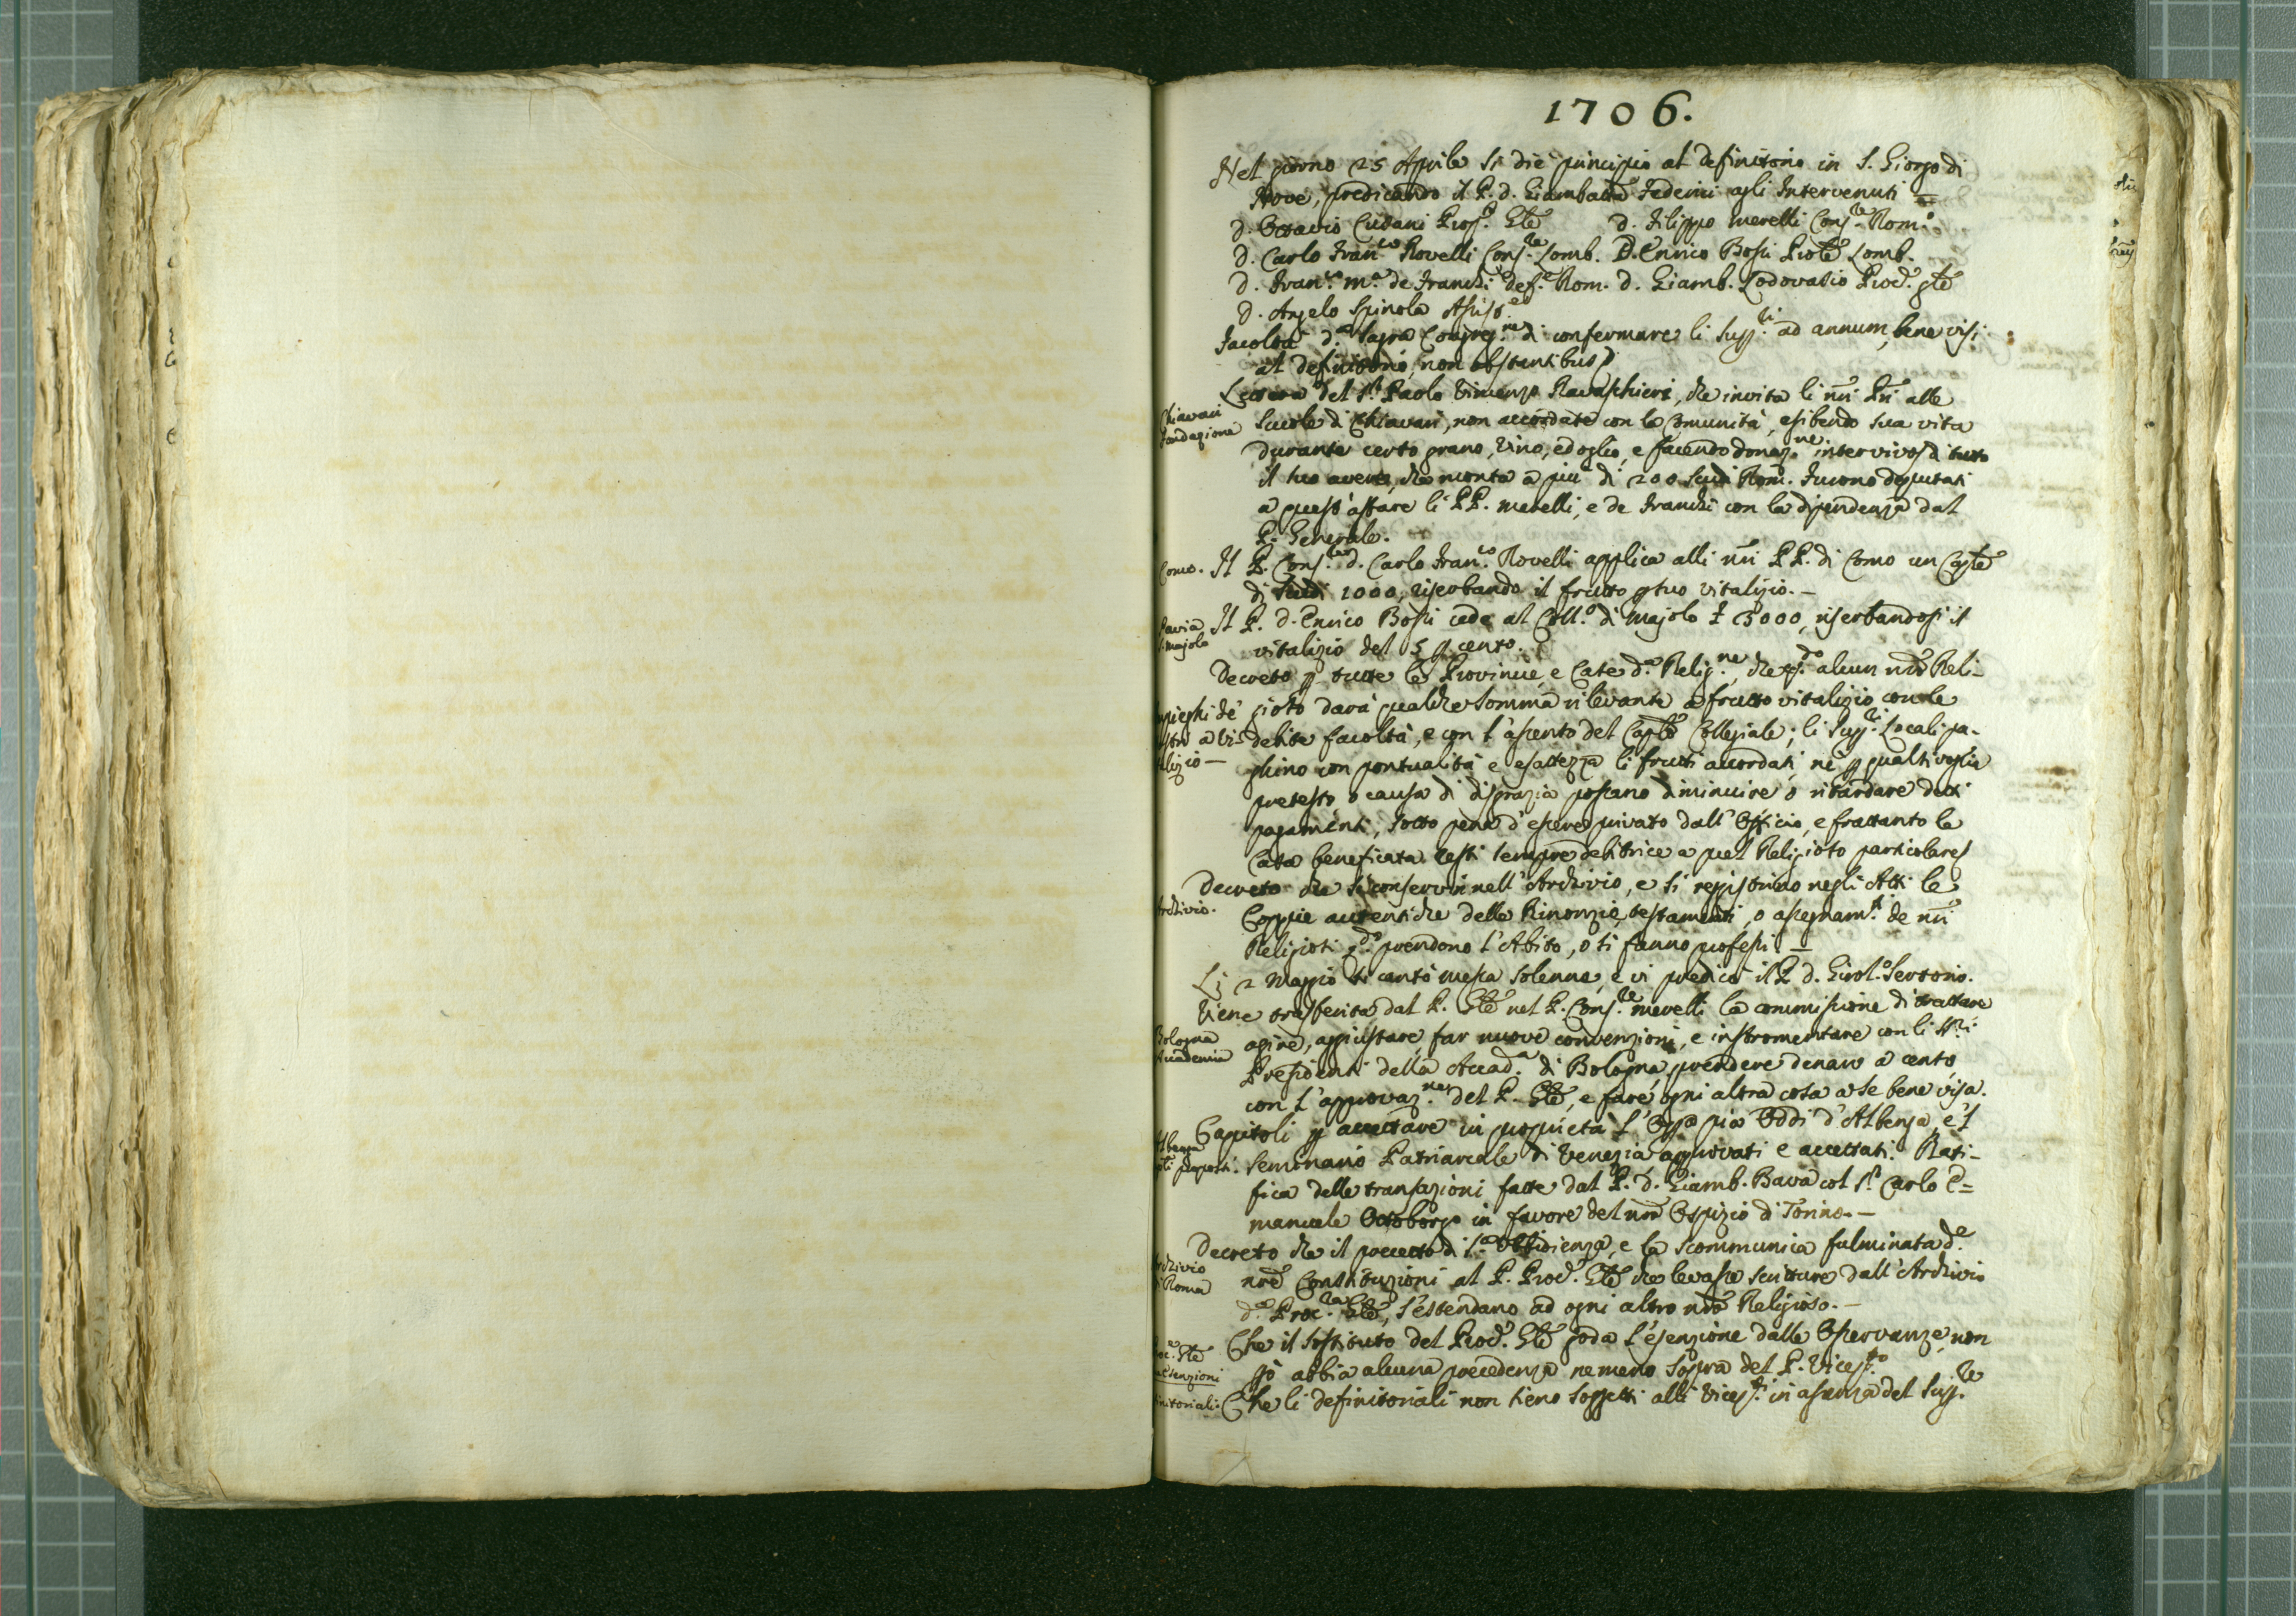 1706.
Nel giorno 25 Aprile si diè principio al definitorio in S. Giorgio di
Nove, predicando il P. d. Giambatta Federici agli Intervenuti =
d. Ottavio Cusani Prep. Gle d. Filippo Merelli Cons.re Rom.o
d. Carlo Fran.co Novelli Cons.re Lomb. D. Enrico Bossi Prole Lomb.
d. Fran.o M.a de Franchi def.e Rom. d. Giamb. Lodovasio Proc.e gle
d. Angelo Spinola Assis.e
Facoltà d.a Sagra Congreg.ne di confermare li Supp.ri ad annum, bene visi
al definitorio, non obstantibus
Lettera del S.r Paolo Vincenzo Ravaschieri, che invita li nri Pri alle
Chiavari
fondazione
Scuole di Chiavari, non accordate con la Comunità, esibendo sua vita
durante certo grano, vino, ed oglio, e facendo donaz.ne intervivos di tutto
il suo avere, che monta a più di 200 scudi Rom. Furono deputati
a quest'affare li PP. Merelli, e de Franchi con la dipendenza dal
P. Generale.
Como. Il P. Cons.re d. Carlo Fran.co Novelli applica alli nri PP. di Como un Caple
di scudi 1000, riserbando il frutto p suo vitalizio. —
Pavia
S. Majolo
Il P. d. Enrico Bossi cede al Coll.o di Majolo 3000, riserbandosi il
vitalizio del 5 p cento.
Decreto p tutte le Provincie, e Case d.a Relig.ne, che q.do alcun nro Reli-
gioso darà qualche somma rilevante a frutto vitalizio, con le
debite facoltà, e con l'assento del Caplo Collegiale; li Supp.ri Locali pa-
ghino con pontualità e esattezza li frutti accordati, nè p qualsivoglia
pretesto, o causa di disgrazia possano diminuire o ritardare detti
pagamenti, sotto pena d'essere privato dall'Officio, e frattanto la
Casa beneficata resti sempre debitrice a quel Religioso particolare
Archivio.
Decreto che si conservin nell'Archivio, e si registrino negli Atti le
Coppie autentiche delle Rinonzie, testamenti, o assegnam.ti de nri
Religiosi q.do prendono l'Abito, o si fanno professi. —
Li 2 Maggio si cantò messa solenne, e vi predicò il P. d. Girol.o Sertorio.
Viene trasferita dal P. Gle nel P. Cons.re Merelli la commissione di trattare
Bologna
Accademia
agire, aggiustare, far nuove convenzioni, e instromentare con li SS.ri
Presidenti della Accad.a di Bologna, prendere denaro a cento,
con l'approvaz.ne del P. Gle, e fare ogni altra cosa a se bene visa.
Capitoli p accettare in proprietà l'Opa pia Oddi d'Albenga, e'l
Seminario Patriarcale di Venezia approvati e accettati. Rati-
fica delle transazioni fatte dal P. d. Giamb. Bava col S.r Carlo E=
manuele Ottoborgo in favore del nro Ospizio di Torino. —
Archivio
di Roma
Decreto che il precetto di S.a Obbidienza, e la scommunica fulminata d.e
nre Constituzioni al P. Proc.e Gle che levasse scritture dall'Archivio
d.a Proc.ra Gle, s'estendano ad ogni altro nro Religioso. —
Proc.e Gle
esenzioni
Che il sostituto del Proc.e Gle goda l'esenzione dalle Osservanze, non
pò abbia alcuna precedenza nemeno sopra del P. Vicep.to
Che li definitoriali non sieno soggetti alli Vicep.ti in assenza del Sup.re